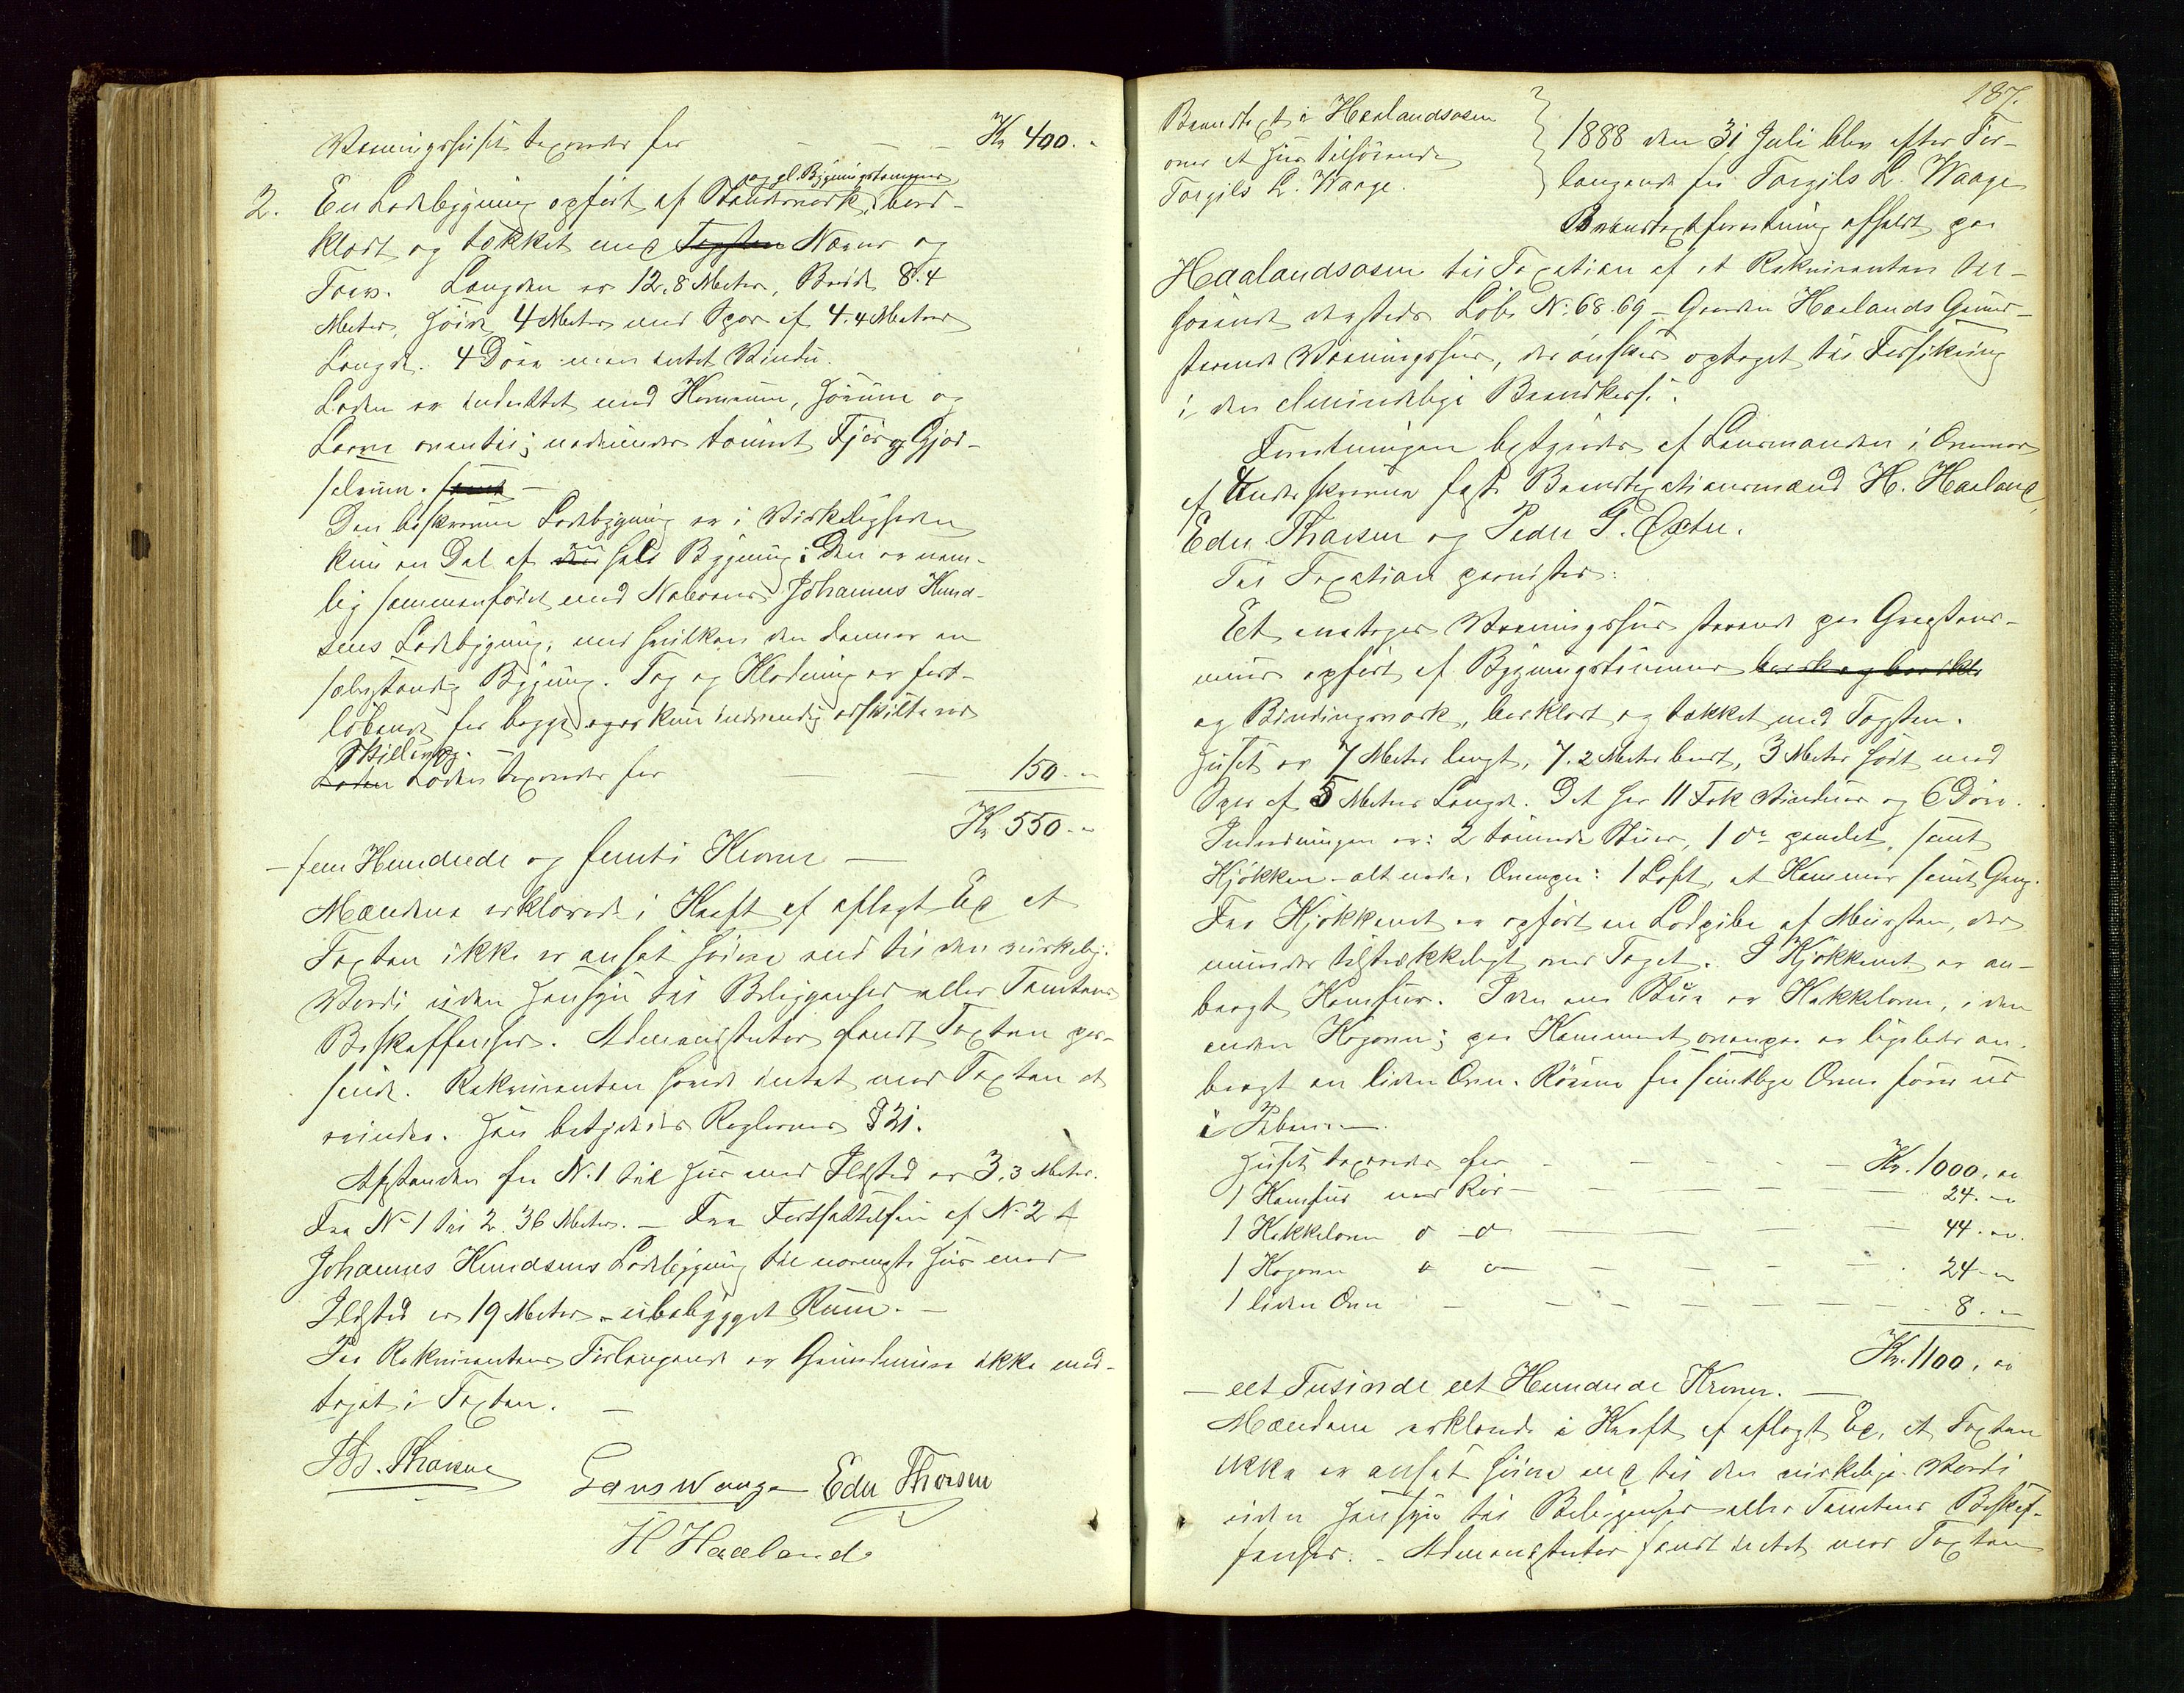 Vaaningshuset taxeredes for — — — Kr 400. "
og gl. Bygningstømmer
2. En Ladebygning opført af Standerværk, bord-
klædt og tækket med Tagsten Næver og
Torv. Længden er 12,8 Meter, Bredde 8.4
Meter, Høide 4 Meter med Spær af 4.4 Meters
Længde. 4 Døre men intet Vindu.
Laden er indrettet med Kornrum, Hørum og
Laave oventil; nedunder tømret Fjøs og Gjød-
selrum. samt —
Den beskrevne Ladebygning er i Virkeligheden
kun en Del af den hele Bygning: Den er nem-
lig sammenføiet med Naboens Johannes Knud-
sens Ladebygning, med hvilken den danner en
selvstændig Bygning. Tag og Klædning er fort-
løbende for begge, og er kun indvendig adskilte ved
Skillevæg.
Laden Laden taxeredes for — — 150. "
Kr 550. "
— fem Hundrede og femti Kroner —
Mændene erklærede i Kraft af aflagt Ed at
Taxten ikke er ansat høiere end til den virkelig.
Værdi uden Hensyn til Beliggenhed eller Tomtens
Beskaffenhed. Administrator fandt Taxten pas-
sende. Rekvirenten havde intet mod Taxten at
erindre. Han betydedes Reglernes § 31.
Afstanden fra N. 1 til Hus med Ildsted er 3,3 Meter.
Fra N. 1 til 2. 36 Meter. — Fra Fortsættelsen af N. 2 f
Johannes Knudsens Ladebygning til nærmeste Hus med
Ildsted er 19 Meter – ubebygget Rum. —
Paa Rekvirentens Forlangende er Grundmure ikke med-
taget i Taxten. —
Th. Thorsen Lars Waage Edu Thorsen
H Haaland
187.
Brandtaxt i Haalandsosen
over et Hus tilhørende
Torgils L. Waage.
1888 den 31 Juli blev efter For-
langende fra Torgils L. Waage
Brandtaxtforretning afholdt paa
Haalandsosen til Taxation af et Rekvirenten til-
hørende dersteds Løbe N: 68. 69 – Gaarden Haalands Grund-
staaende Vaaningshus, der ønskes optaget til Forsikring
i den almindelige Brandkasse.
Forretningen bestyredes af Lensmanden i Overvær
af Underskrevne faste Brandtaxationsmænd H. Haaland,
Edu Thorsen og Peder T. Østre.
Til Taxation paavistes:
Eet enetages Vaaningshus staaende paa Graastens-
muur opført af Bygningstømmer
og Bindingsværk, bordklædt og tækket med Tagsten.
Huset er 7 Meter langt, 7.2 Meter bredt, 3 Meter høit med
Spær af 5 Meters Længde. Det har 11 Fak Vinduer og 6 Døre.
Indredningen er: 2 tømrede Stuer, 1 do panelet, samt
Kjøkken – alt nede. Ovenpaa: 1 Loft, et Kammer samt Gang.
Fra Kjøkkenet er opført en Lodpibe af Mursten, der
munder tilstrækkeligt over Taget. I Kjøkkenet er an-
bragt Komfur. I den ene Stue er Kakkelovn, i den
anden Kogovn; paa Kammeret ovenpaa er ligeledes an-
bragt en liden Ovn. Rørene fra samtlige Ovne føres ud
i Piben. —
Huset taxeredes for — — — — Kr. 1000. "
1 Komfur med Rør — — — — 24. "
1 Kakkelovn o o — — — 44. "
1 Kogovn o o — — — 24. "
1 liden Ovn — — — — 8. "
Kr. 1100. "
— eet Tusinde eet Hundrede Kroner. —
Mændene erklærede i Kraft af aflagt Ed, at Taxten
ikke er ansat høiere end til den virkelige Værdi
uden Hensyn til Beliggenhed eller Tomtens Beskaf-
fenhed. – Administrator fandt intet mod Taxten